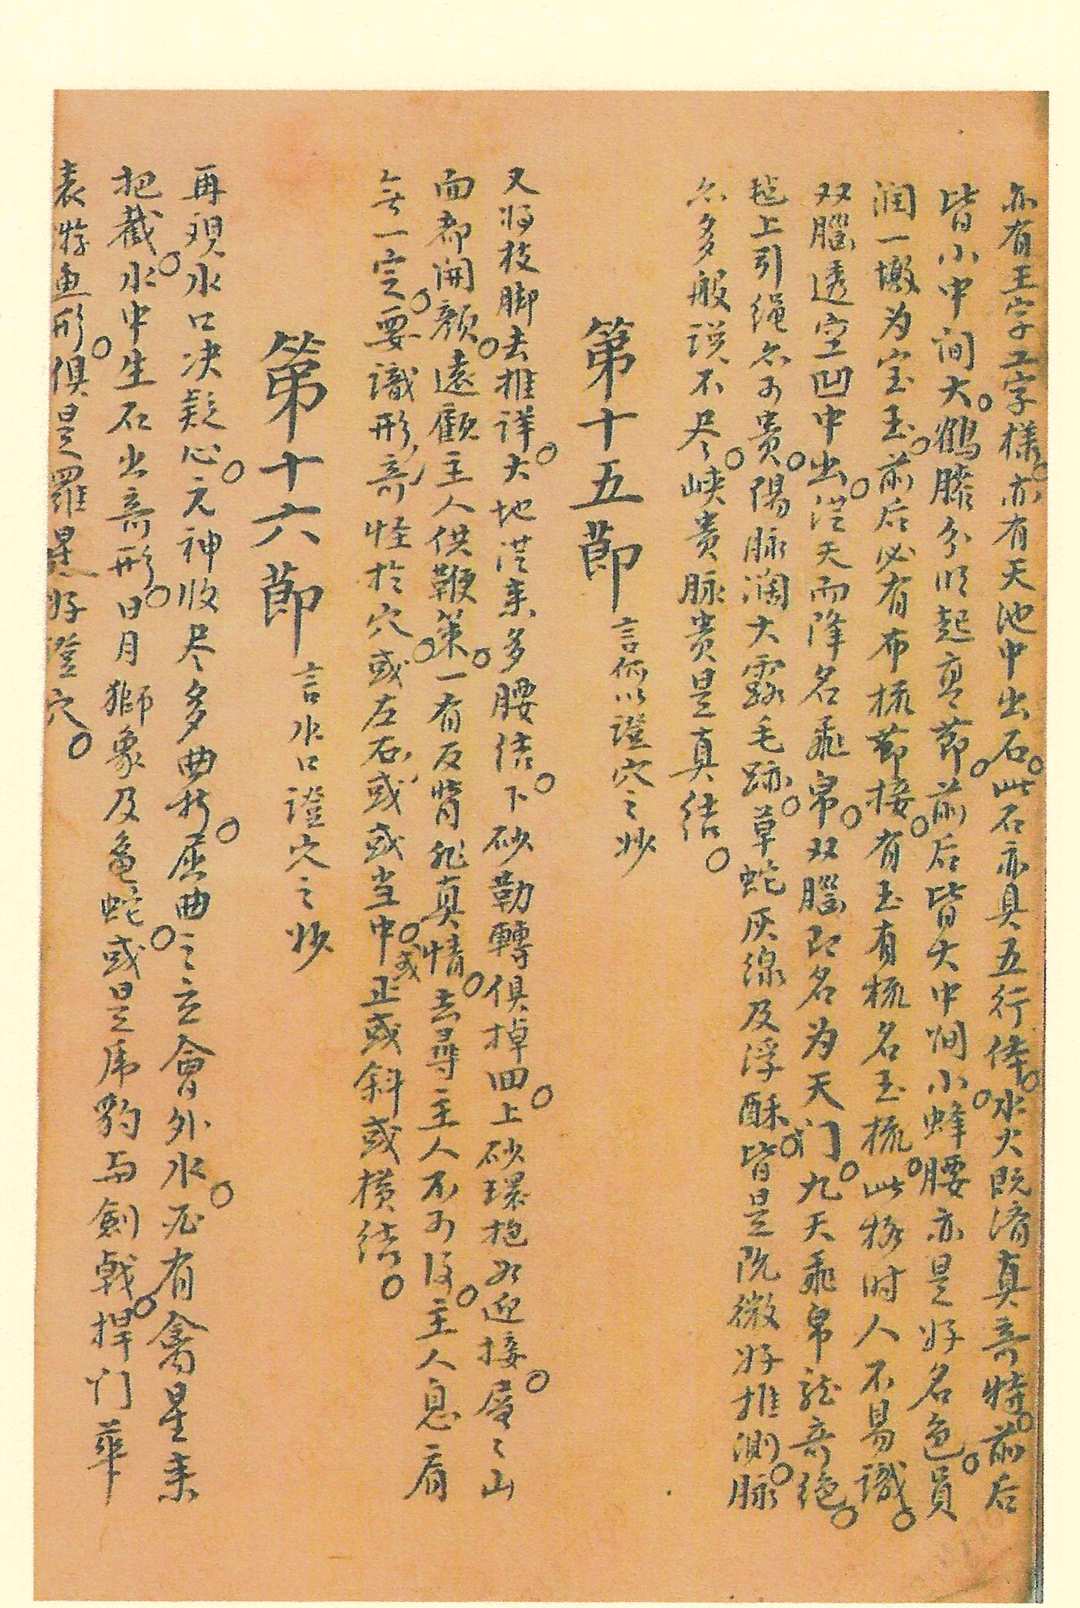 亦有王字工字樣。亦有天池中出石。此石亦具五行体。水火既濟真奇特。前后
皆小中间大。鶴膝分明起高節。前后皆大中间小。蜂腰亦是好名色。員
润一墩为宝玉。前后必有布梳節接。有玉有梳名玉梳。此格时人不易識。
双腦透空凹中出。從天而降名飛帛。双腦即名为天门。九天飛帛龍奇绝。
毡上引绳尔可贵。陽脉濶大露毛跡。草蛇灰線及浮酥。皆是阮微好推測。脉
尔多般説不尽。峡贵脉贵是真结。
第十五節 言何以證穴之妙
又将枝脚去推详。大地從来多腰结。下砂勒轉俱掉回。上砂環抱为迎接。層々山
面都開顏。遠顧主人供鞭策。一有反背非真情。去尋主人不可得。主人息肩
無一定。要識形奇怪於穴。或左右或或当中。或正或斜或横结。
第十六節 言水口證穴之妙
再观水口决疑心。元神收尽多曲折。屈曲之立會外水。必有禽星来
把截。水中生石出奇形。日月獅象及龜蛇。或是馬豹与劍戟。捍门華
表游魚形。俱是羅星好證穴。